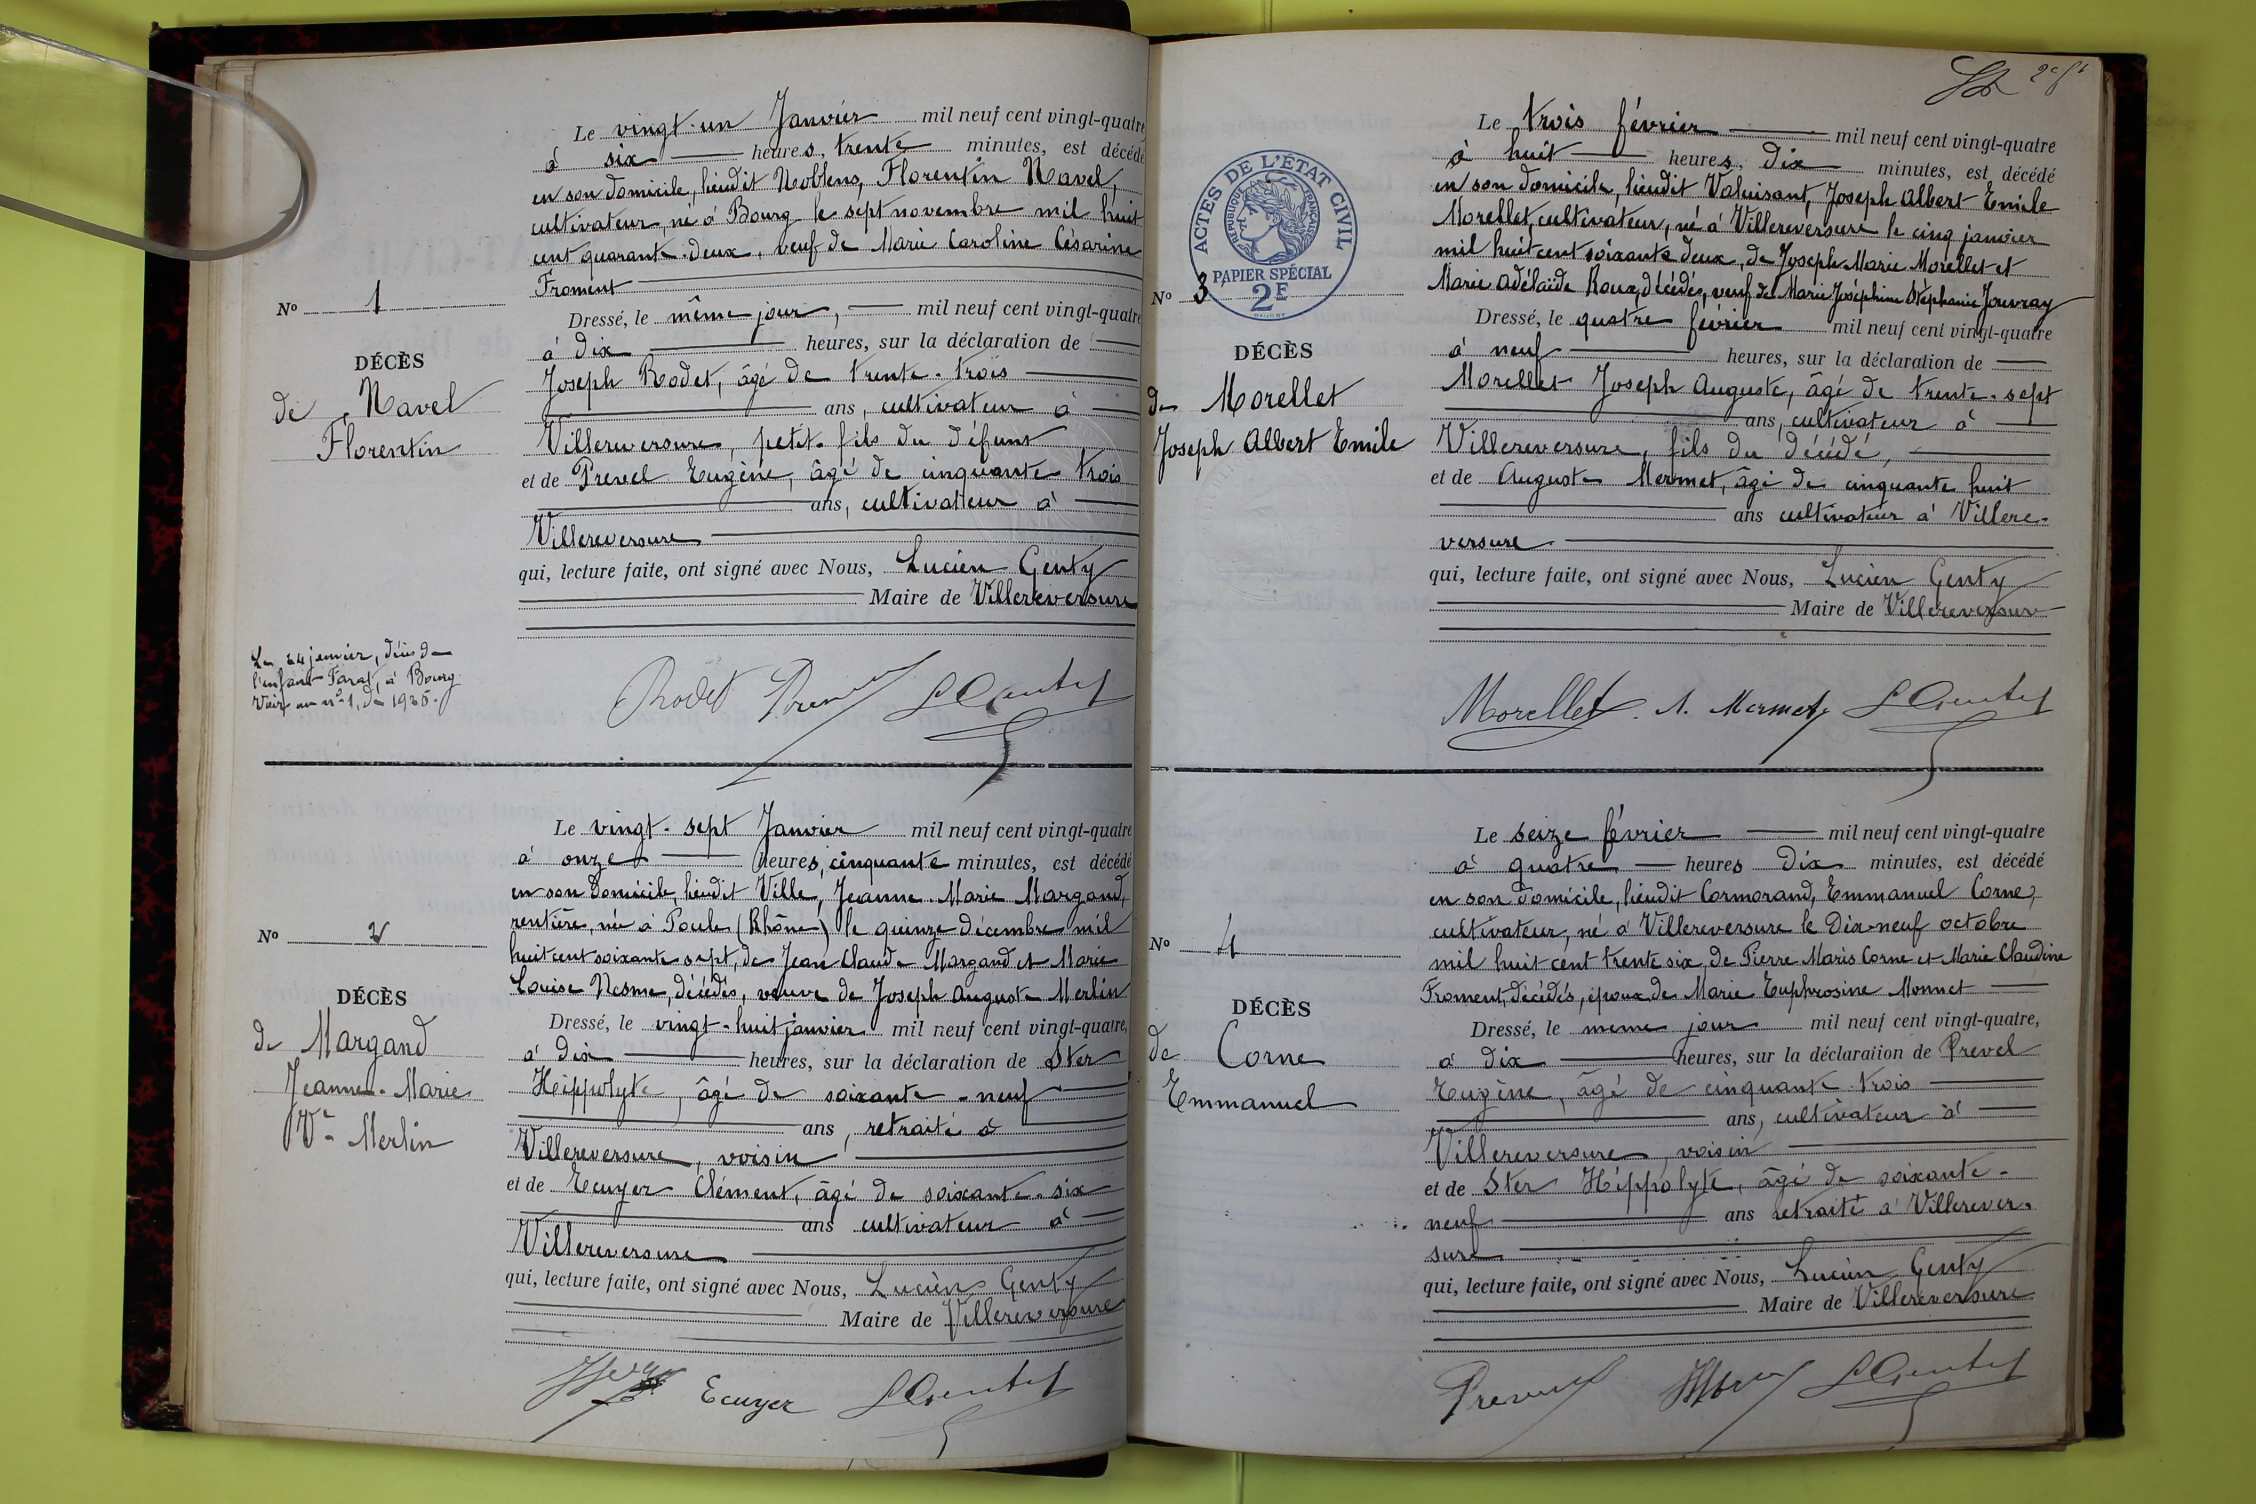 Le vingt-un Janvier mil neuf cent vingt-quatre
à six heures, trente minutes, est décédé
en son domicile, lieudit Noblens, Florentin Navel,
cultivateur, né à Bourg le sept novembre mil huit
cent quarante-deux, veuf de Marie Caroline Césarine
Froment
Nº 1
Dressé, le même jour, mil neuf cent vingt-quatre
à dix heures, sur la déclaration de
DÉCÈS
Joseph Rodet, âgé de trente-trois
de Navel
ans, cultivateur à
Florentin
Villereversure, petit-fils du défunt
et de Prevel Eugène, âgé de cinquante trois
ans, cultivateur à
Villereversure
qui, lecture faite, ont signé avec Nous, Lucien Genty
Maire de Villereversure
Le 24 janvier, décès de
l'enfant Farat, à Bourg
Voir au nº 1, de 1925.
Rodet Prevel LGenty
Le vingt-sept Janvier mil neuf cent vingt-quatre
à onze heures, cinquante minutes, est décédé
en son domicile, lieudit Ville, Jeanne-Marie Margand,
rentière, née à Poule (Rhône) le quinze décembre mil
Nº 2
huit cent soixante sept, de Jean Claude Margand et Marie
Louise Nesme, décédés, veuve de Joseph Auguste Merlin
DÉCÈS
Dressé, le vingt-huit janvier mil neuf cent vingt-quatre,
de Margand
à dix heures, sur la déclaration de Ster
Jeanne-Marie
Hippolyte, âgé de soixante-neuf
Vᵉ Merlin
ans, retraité à
Villereversure, voisin
et de Ecuyer Clément, âgé de soixante-six
ans cultivateur à
Villereversure
qui, lecture faite, ont signé avec Nous, Lucien Genty
Maire de Villereversure
Ecuyer LGenty
2e ft
Le trois février mil neuf cent vingt-quatre
à huit heures, dix minutes, est décédé
en son domicile, lieudit Valuisant, Joseph Albert Emile
Morellet, cultivateur, né à Villereversure le cinq janvier
mil huit cent soixante deux, de Joseph Marie Morellet et
Marie Adélaïde Roux, décédés, veuf de Marie Joséphine Stéphanie Jouvray
ACTES DE L'ÉTAT CIVIL
RÉPUBLIQUE FRANÇAISE
PAPIER SPÉCIAL
2E
Nº 3
Dressé, le quatre février mil neuf cent vingt-quatre
DÉCÈS
à neuf heures, sur la déclaration de
de Morellet
Morellet Joseph Auguste, âgé de trente-sept
ans, cultivateur à
Joseph Albert Emile
Villereversure, fils du décédé,
et de Auguste Mermet, âgé de cinquante huit
ans cultivateur à Villere-
versure
qui, lecture faite, ont signé avec Nous, Lucien Genty
Maire de Villereversure
Morellet A. Mermet LGenty
Le seize février mil neuf cent vingt-quatre
à quatre heures dix minutes, est décédé
en son domicile, lieudit Cormorand, Emmanuel Corne,
cultivateur, né à Villereversure le dix-neuf octobre
Nº 4
mil huit cent trente six, de Pierre Marie Corne et Marie Claudine
Froment, décédés, époux de Marie Euphrosine Monnet
DÉCÈS
Dressé, le même jour mil neuf cent vingt-quatre,
de Corne
à dix heures, sur la déclaration de Prevel
Emmanuel
Eugène, âgé de cinquante-trois
ans, cultivateur à
Villereversure, voisin
et de Ster Hippolyte, âgé de soixante-
neuf ans retraité à Villerever-
sure
qui, lecture faite, ont signé avec Nous, Lucien Genty
Maire de Villereversure
Prevel LGenty